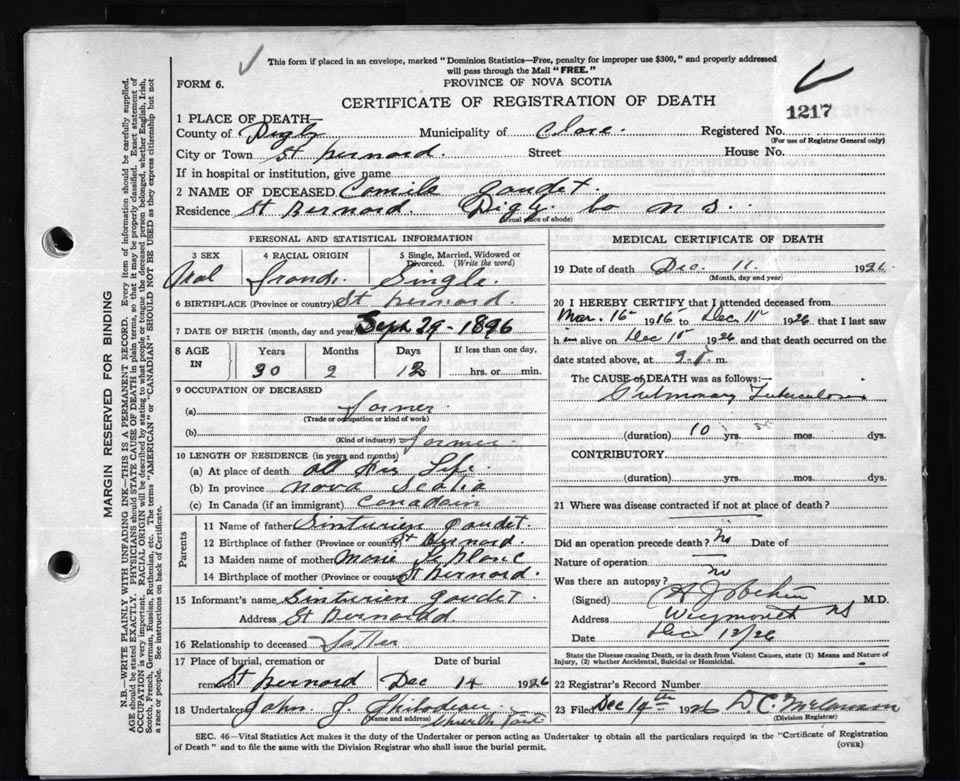 This form if placed in an envelope, marked "Dominion Statistics—Free, penalty for improper use $300," and properly addressed
will pass through the Mail "FREE."
FORM 6.
PROVINCE OF NOVA SCOTIA
CERTIFICATE OF REGISTRATION OF DEATH
1217
1 PLACE OF DEATH—
County of Digby Municipality of Clare. Registered No.
(For use of Registrar General only)
City or Town St Bernard. Street House No.
If in hospital or institution, give name
2 NAME OF DECEASED Camile Gaudet.
Residence St Bernard. Digby Co N S.
(Usual place of abode)
PERSONAL AND STATISTICAL INFORMATION
3 SEX 4 RACIAL ORIGIN 5 Single, Married, Widowed or
Divorced. (Write the word)
Single.
6 BIRTHPLACE (Province or country) St Bernard.
7 DATE OF BIRTH (month, day and year) Sept 29-1896
8 AGE IN Years Months Days If less than one day,
30 2 12 hrs. or min.
9 OCCUPATION OF DECEASED
(a) Farmer.
(Trade or occupation or kind of work)
(b) Farmer.
(Kind of industry)
10 LENGTH OF RESIDENCE (in years and months)
(a) At place of death all His Life
(b) In province Nova Scotia
(c) In Canada (if an immigrant) Canadain
Parents
11 Name of father Sinturien Gaudet.
12 Birthplace of father (Province or country) St Bernard.
13 Maiden name of mother LeBlanc
14 Birthplace of mother (Province or country) St Bernard.
15 Informant's name Sinturien Gaudet.
Address St Bernard
16 Relationship to deceased Father
17 Place of burial, cremation or Date of burial
removal St Bernard Dec 14 1926
18 Undertaker John J
(Name and address) Church Point
MEDICAL CERTIFICATE OF DEATH
19 Date of death Dec. 11. 1926.
(Month, day and year)
20 I HEREBY CERTIFY that I attended deceased from
Mar. 15 1916 to Dec 11 1926 that I last saw
h im alive on Dec 10 1926 and that death occurred on the
date stated above, at m.
The CAUSE of DEATH was as follows:—
Pulmonary Tuberculosis
(duration) 10 yrs. mos. dys.
CONTRIBUTORY
(duration) yrs. mos. dys.
21 Where was disease contracted if not at place of death?
Did an operation precede death? No Date of
Nature of operation
Was there an autopsy? no
(Signed) M.D.
Address Weymouth NS
Date Dec 12/26
State the Disease causing Death, or in death from Violent Causes, state (1) Means and Nature of
Injury, (2) whether Accidental, Suicidal or Homicidal.
22 Registrar's Record Number
23 Filed Dec 14th 1926 D. C. Melanson
(Division Registrar)
SEC. 46—Vital Statistics Act makes it the duty of the Undertaker or person acting as Undertaker to obtain all the particulars required in the "Certificate of Registration
of Death" and to file the same with the Division Registrar who shall issue the burial permit.
(OVER)
MARGIN RESERVED FOR BINDING
N.B.—WRITE PLAINLY WITH UNFADING INK—THIS IS A PERMANENT RECORD. Every item of information should be carefully supplied.
AGE should be stated EXACTLY. PHYSICIANS should STATE CAUSE OF DEATH in plain terms, so that it may be properly classified. Exact statement of
OCCUPATION is very important. RACIAL ORIGIN will be described by stating to what people or tongue the deceased person belonged, whether English, Irish,
Scotch, French, German, Russian, Ruthenian, etc. The terms "AMERICAN" or "CANADIAN" SHOULD NOT BE USED as they express citizenship but not
a race or people. See instructions on back of Certificate.